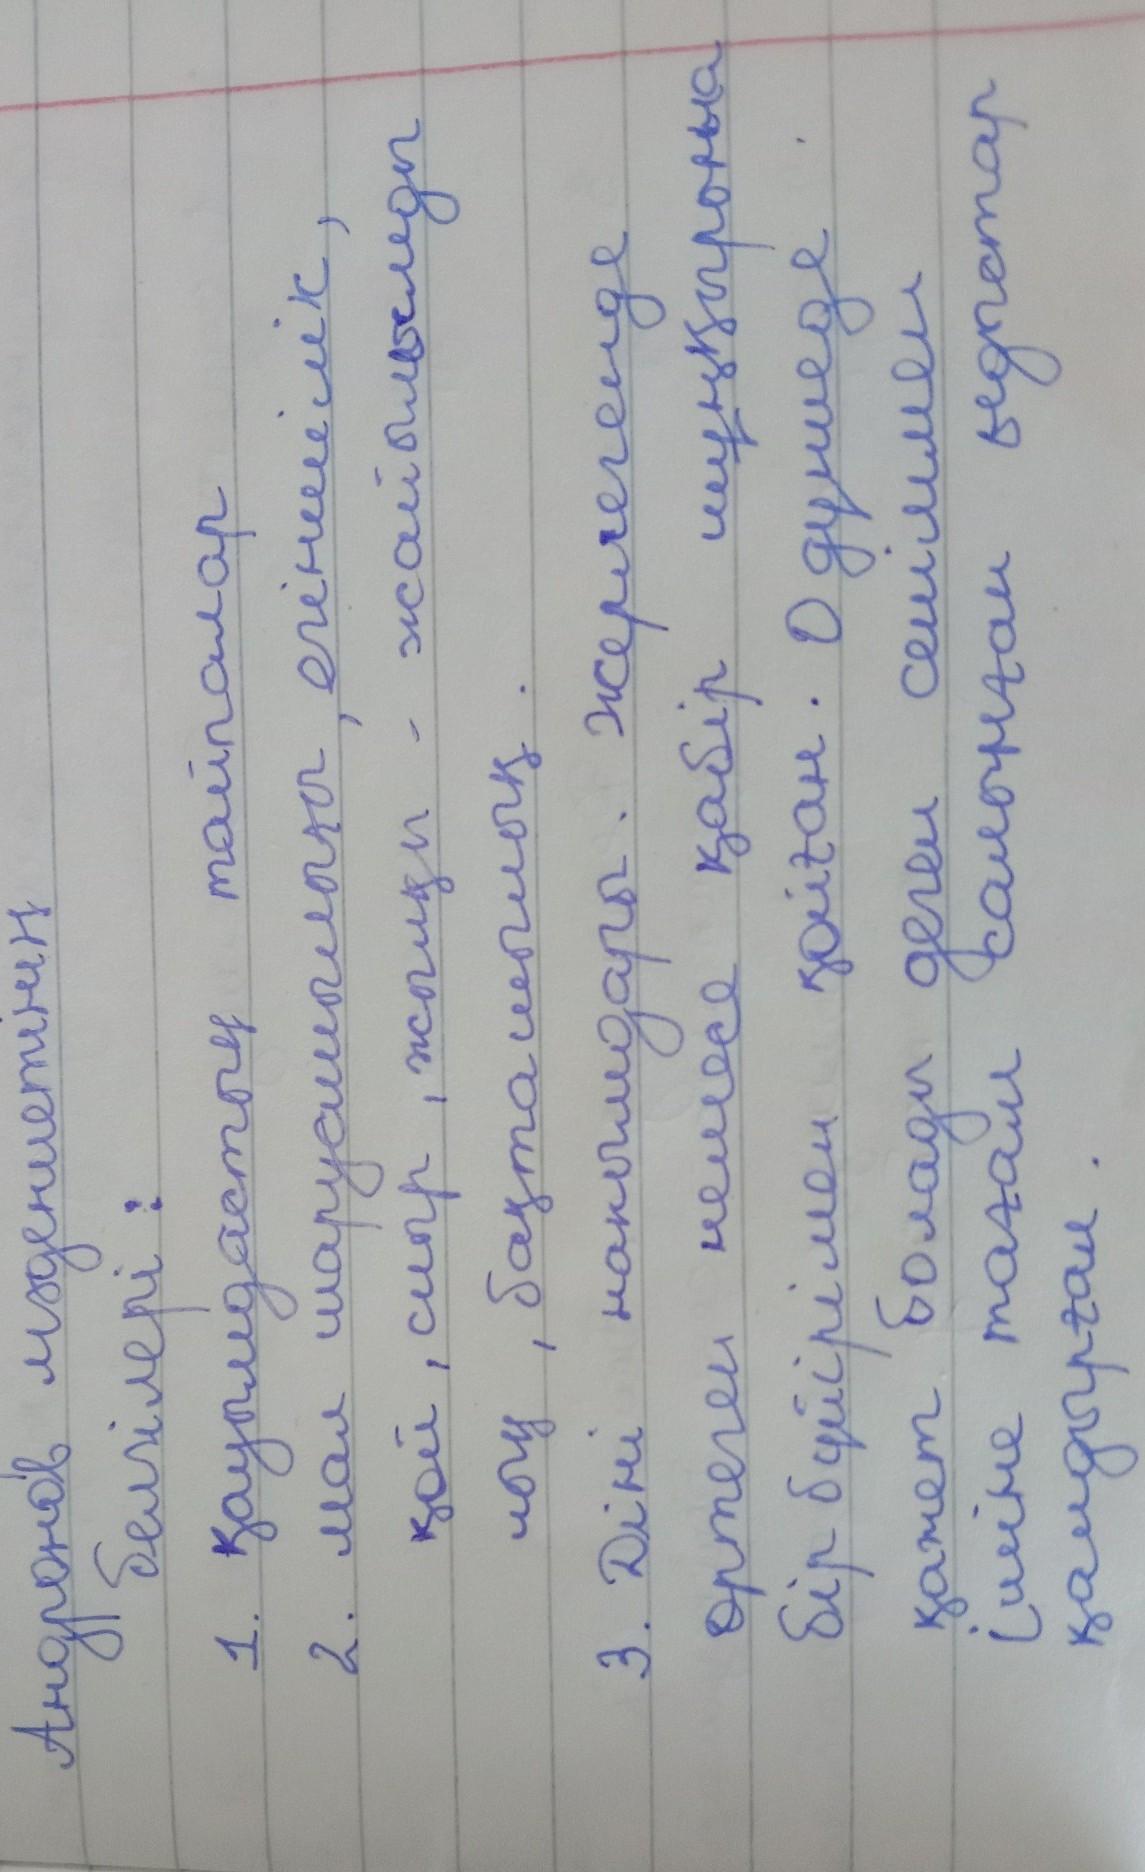 Андронов мәдениетінің
белгілері:
1. қауымдастық тайпалар
2. мал шаруашылығы, егіншілік,
қой, сиыр, жылқы - жайылымды
лық, бақташылық.
3. Діни нанымдары. Жерлегенде
өртеген немесе қабір шұңқырына
бір бүйірімен қойған. О дүниеде
қажет болады деген сеніммен
ішіне тағам салынған ыдыстар
қалдырған.